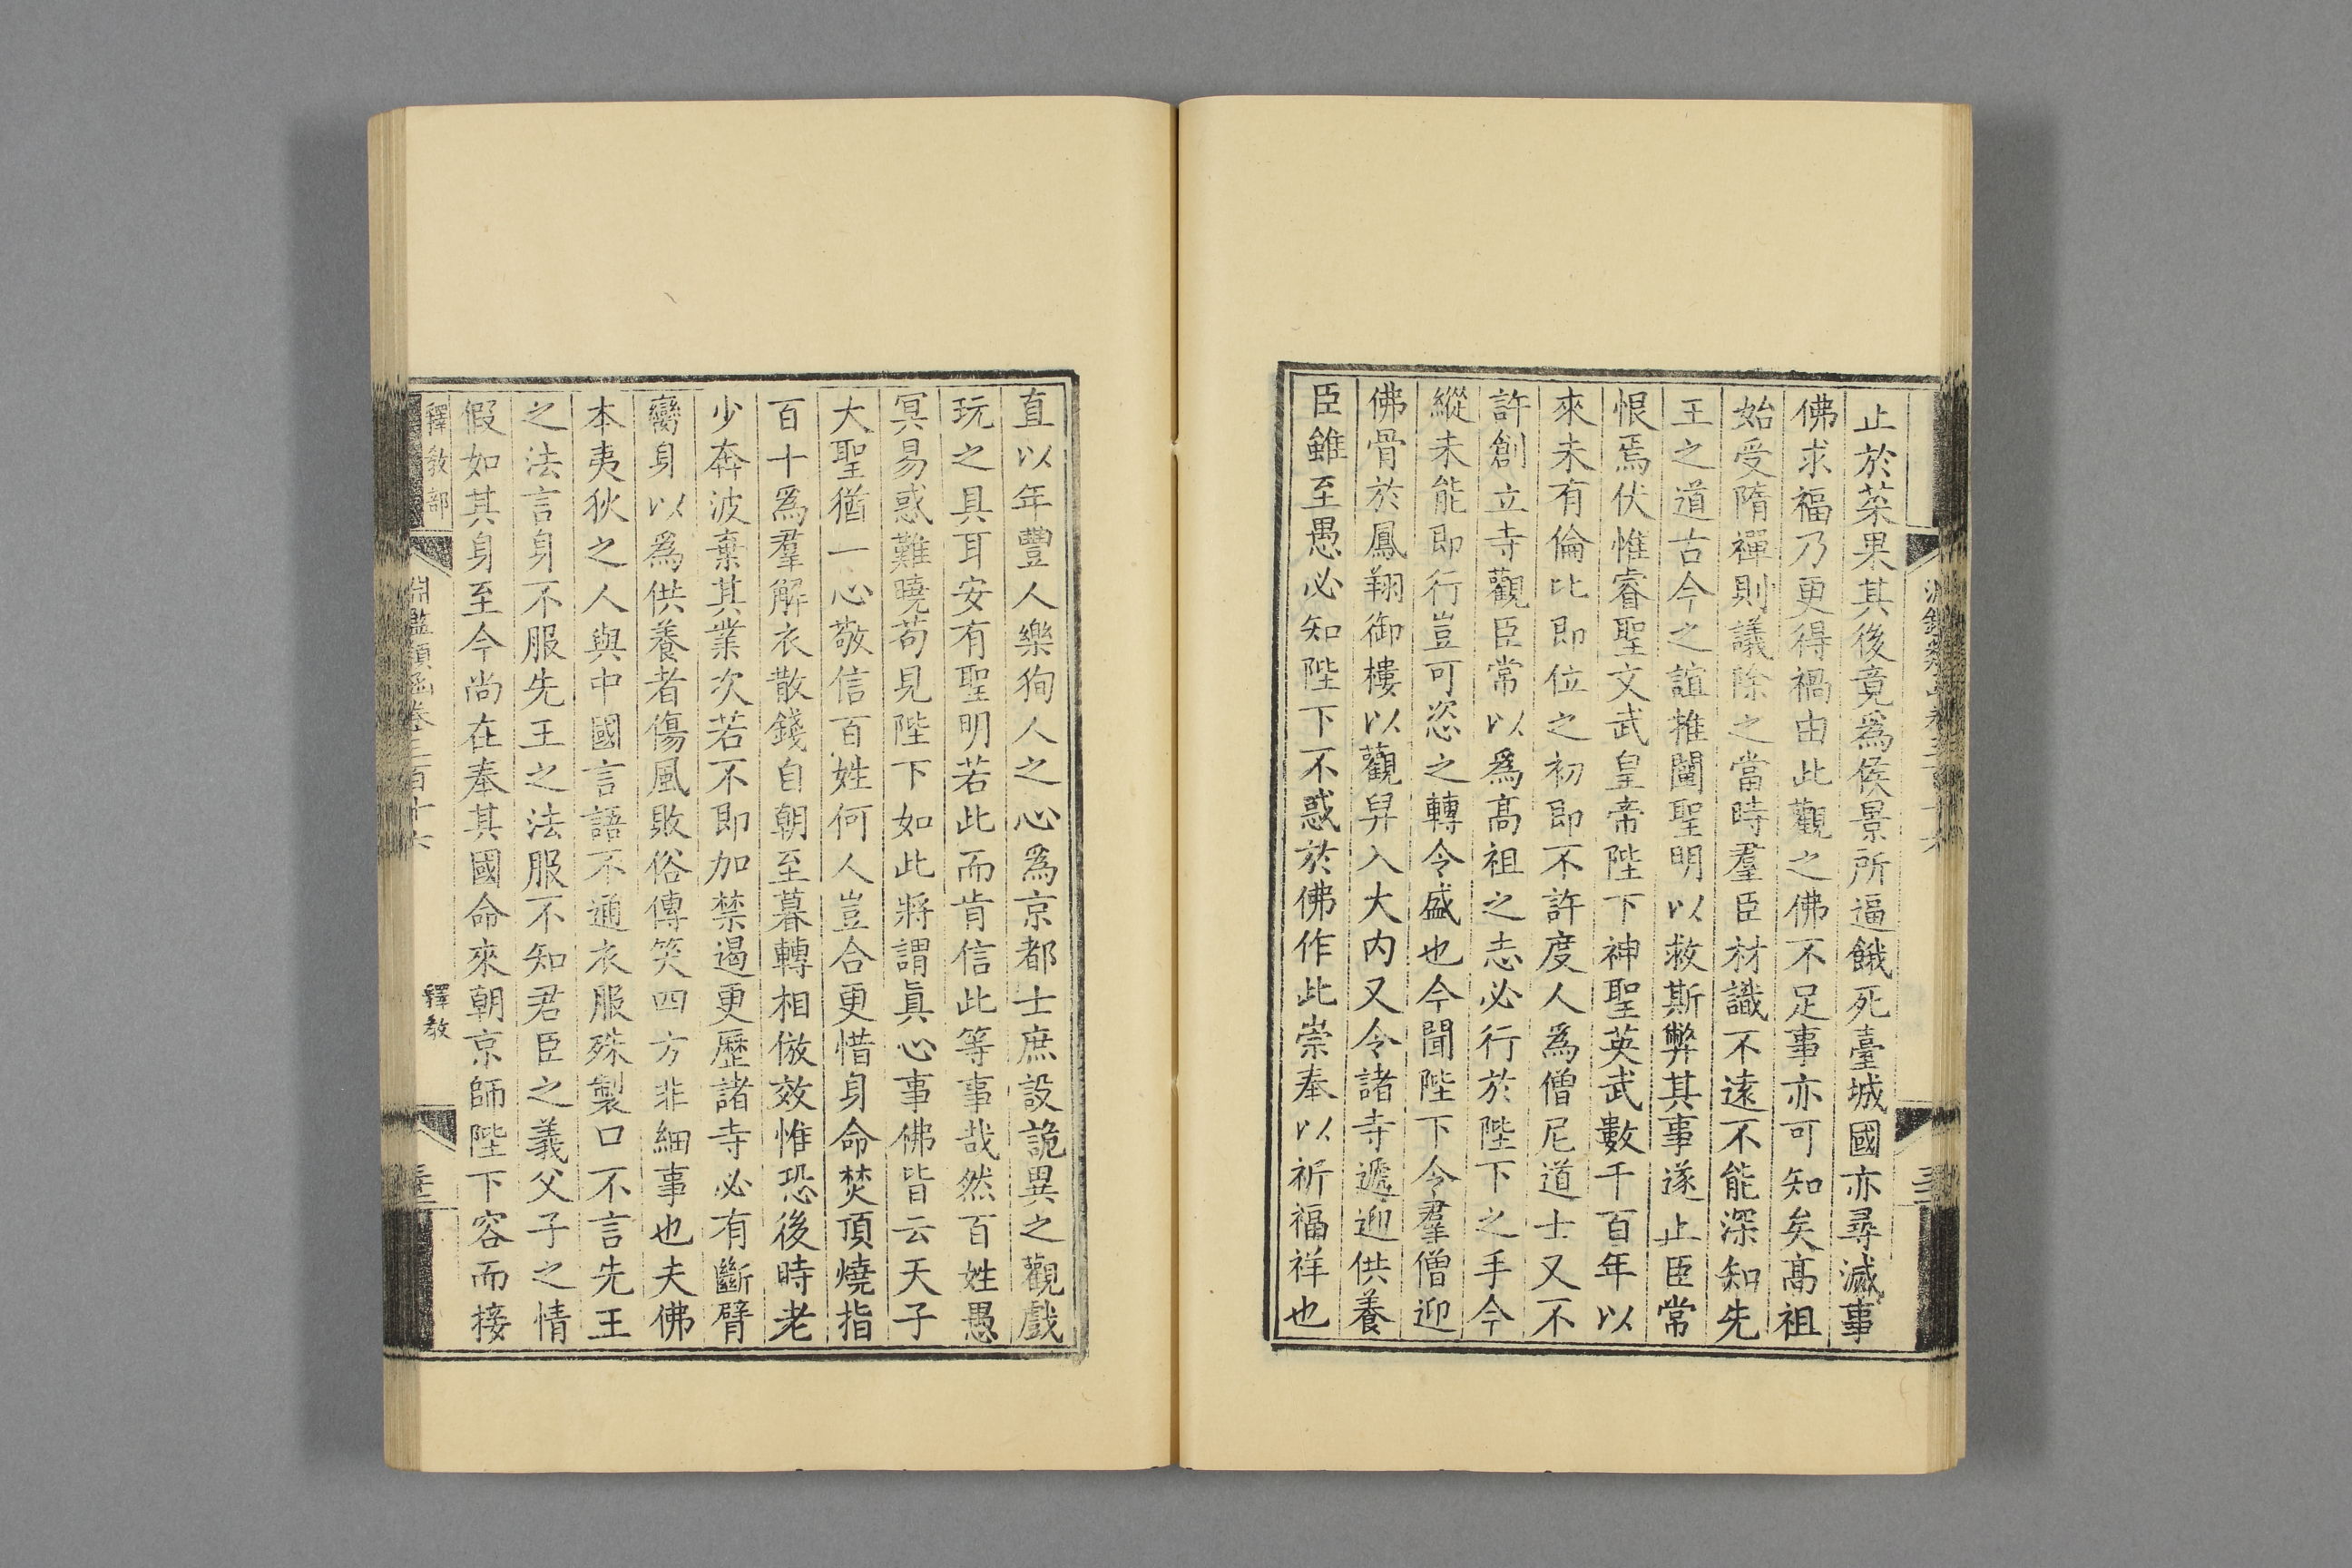 止於菜果其後竟爲侯景所逼餓死臺城國亦尋滅事
佛求福乃更得禍由此觀之佛不足事亦可知矣高祖
始受隋禪則議除之當時羣臣材識不遠不能深知先
王之道古今之誼推闡聖明以救斯弊其事遂止臣常
恨焉伏惟睿聖文武皇帝陛下神聖英武數千百年以
來未有倫比即位之初即不許度人爲僧尼道士又不
許創立寺觀臣常以爲高祖之志必行於陛下之手今
縱未能即行豈可恣之轉令盛也今聞陛下令羣僧迎
佛骨於鳳翔御樓以觀舁入大内又令諸寺遞迎供養
臣雖至愚必知陛下不惑於佛作此崇奉以祈福祥也
直以年豐人樂狥人之心爲京都士庶設詭異之觀戲
玩之具耳安有聖明若此而肯信此等事哉然百姓愚
冥易惑難曉苟見陛下如此將謂眞心事佛皆云天子
大聖猶一心敬信百姓何人豈合更惜身命焚頂燒指
百十爲羣解衣散錢自朝至暮轉相倣效惟恐後時老
少奔波棄其業次若不即加禁遏更歷諸寺必有斷臂
臠身以爲供養者傷風敗俗傳笑四方非細事也夫佛
本夷狄之人與中國言語不通衣服殊製口不言先王
之法言身不服先王之法服不知君臣之義父子之情
假如其身至今尚在奉其國命來朝京師陛下容而接
釋敎部
淵鑑類函卷三百十六
釋敎